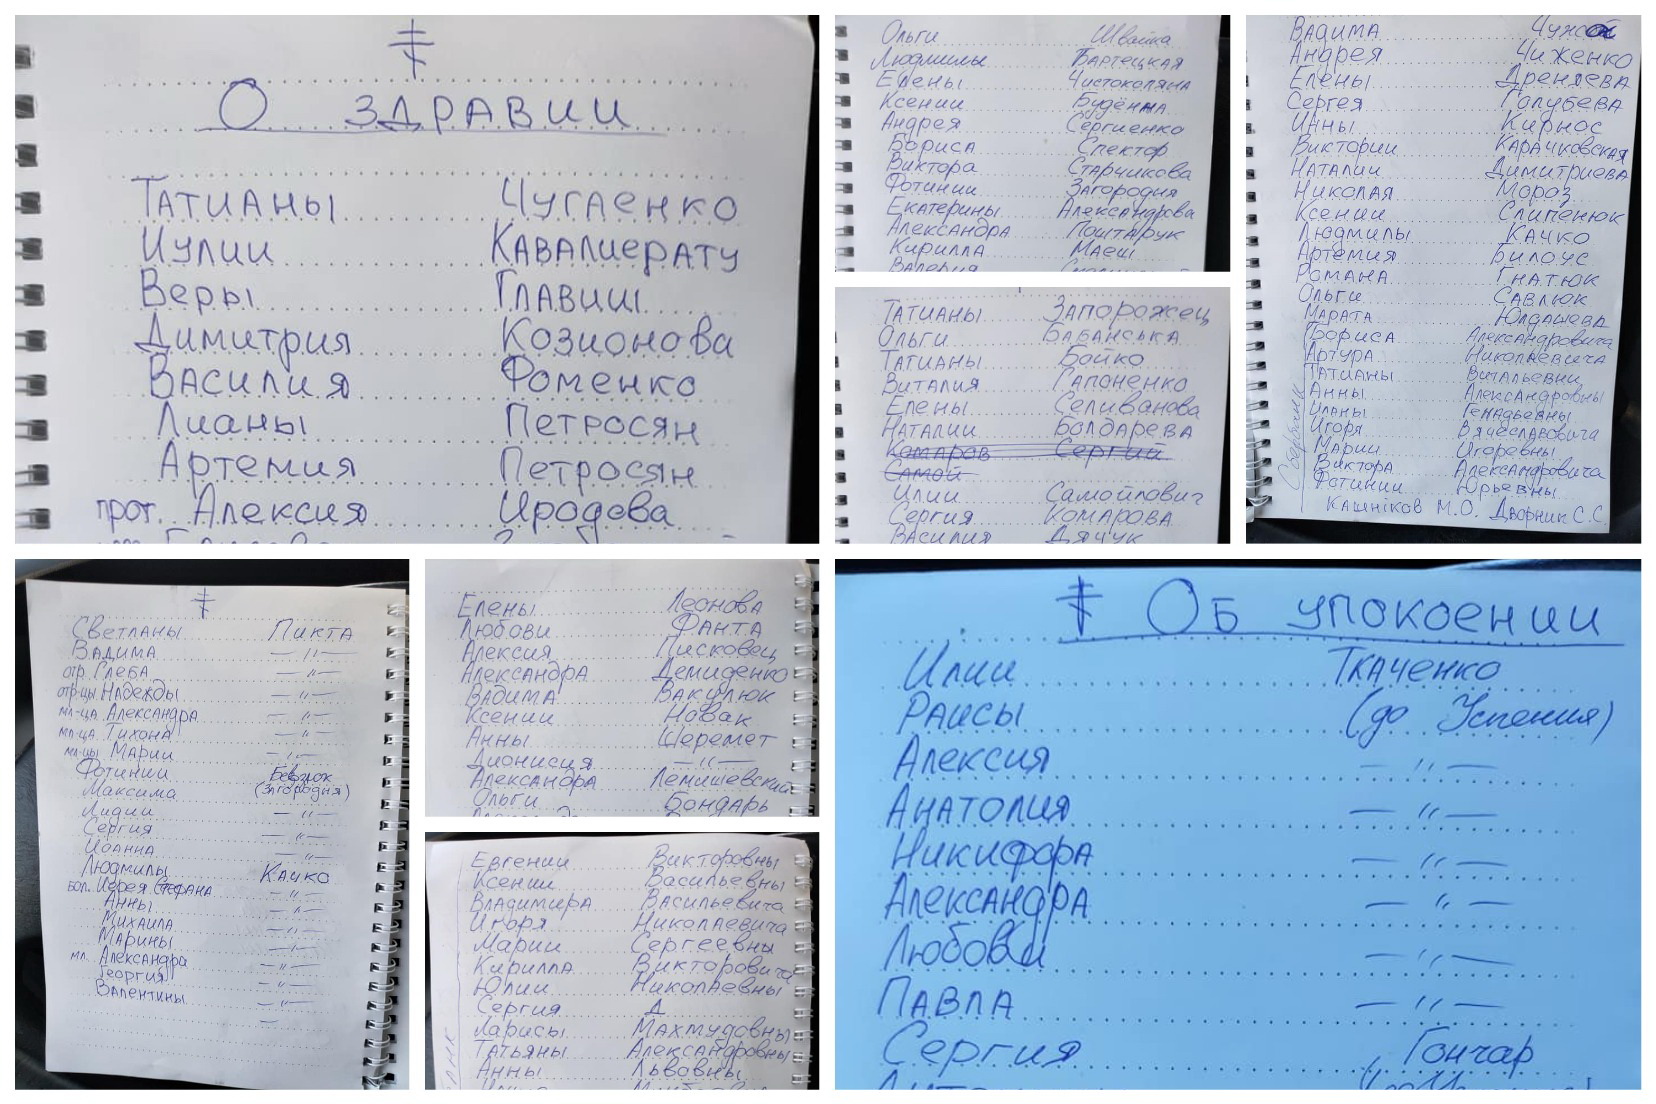 О ЗДРАВИИ
Татианы Чугаенко
Иулии Кавалиерату
Веры Главиш
Димитрия Козионова
Василия Фоменко
Лианы Петросян
Артемия Петросян
прот. Алексия Иродова
Ольги Швайка
Людмилы Бартецкая
Елены Чистоколяна
Ксении Будённа
Андрея Сергиенко
Бориса Спектор
Виктора Старчикова
Фотинии Загородня
Екатерины Александрова
Александра Поштарук
Кирилла Маеш
Валерия
Татианы Запорожец
Ольги Балбанська
Татианы Бойко
Виталия Гапоненко
Елены Селиванова
Наталии Болдарева
Комаров Сергий
Самой
Илии Самойлович
Сергия Комарова
Василия Дячук
Вадима
Андрея Чиженко
Елены Дреняева
Сергея Голубева
Инны Кирнос
Виктории Карачковская
Наталии Димитриева
Николая Мороз
Ксении Слипенюк
Людмилы Качко
Артемия Билоус
Романа Гнатюк
Ольги Савлюк
Марата Юлдашева
Бориса Александровича
Артура Николаевича
Татианы Витальевны
Анны Александровны
Иланы Генадьевны
Игоря Вячеславовича
Марии Игоревны
Виктора Александровича
Фотинии Юрьевны
Кашніков М.О. Дворник С.С.
Светланы Пикта
Вадима —〃 —
отр. Глеба — 〃 —
отр-цы Надежды — 〃 —
мл-ца Александра — 〃 —
мл-ца Тихона — 〃 —
мл-цы Марии — 〃 —
Фотинии Бевзюк
Максима (Загородня)
Лидии — 〃 —
Сергия — 〃 —
Иоанна — 〃 —
Людмилы Качко
бол. Иерея Стефана — 〃 —
Анны — 〃 —
Михаила — 〃 —
Марины — 〃 —
мл. Александра — 〃 —
Георгия — 〃 —
Валентины — 〃 —
Елены Леонова
Любови Фанта
Алексия Писковец
Александра Демиденко
Вадима Вакулюк
Ксении Новак
Анны Шеремет
Дионисия — 〃 —
Александра Лемишевский
Ольги Бондарь
Евгении Викторовны
Ксении Васильевны
Владимира Васильевича
Игоря Николаевича
Марии Сергеевны
Кирилла Викторовича
Юлии Николаевны
Сергия Д
Ларисы Махмудовны
Татьяны Александровны
Анны Львовны
Об упокоении
Илии Ткаченко
Раисы (до Успения)
Алексия — 〃 —
Анатолия — 〃 —
Никифора — 〃 —
Александра — 〃 —
Любови — 〃 —
Павла — 〃 —
Сергия Гончар